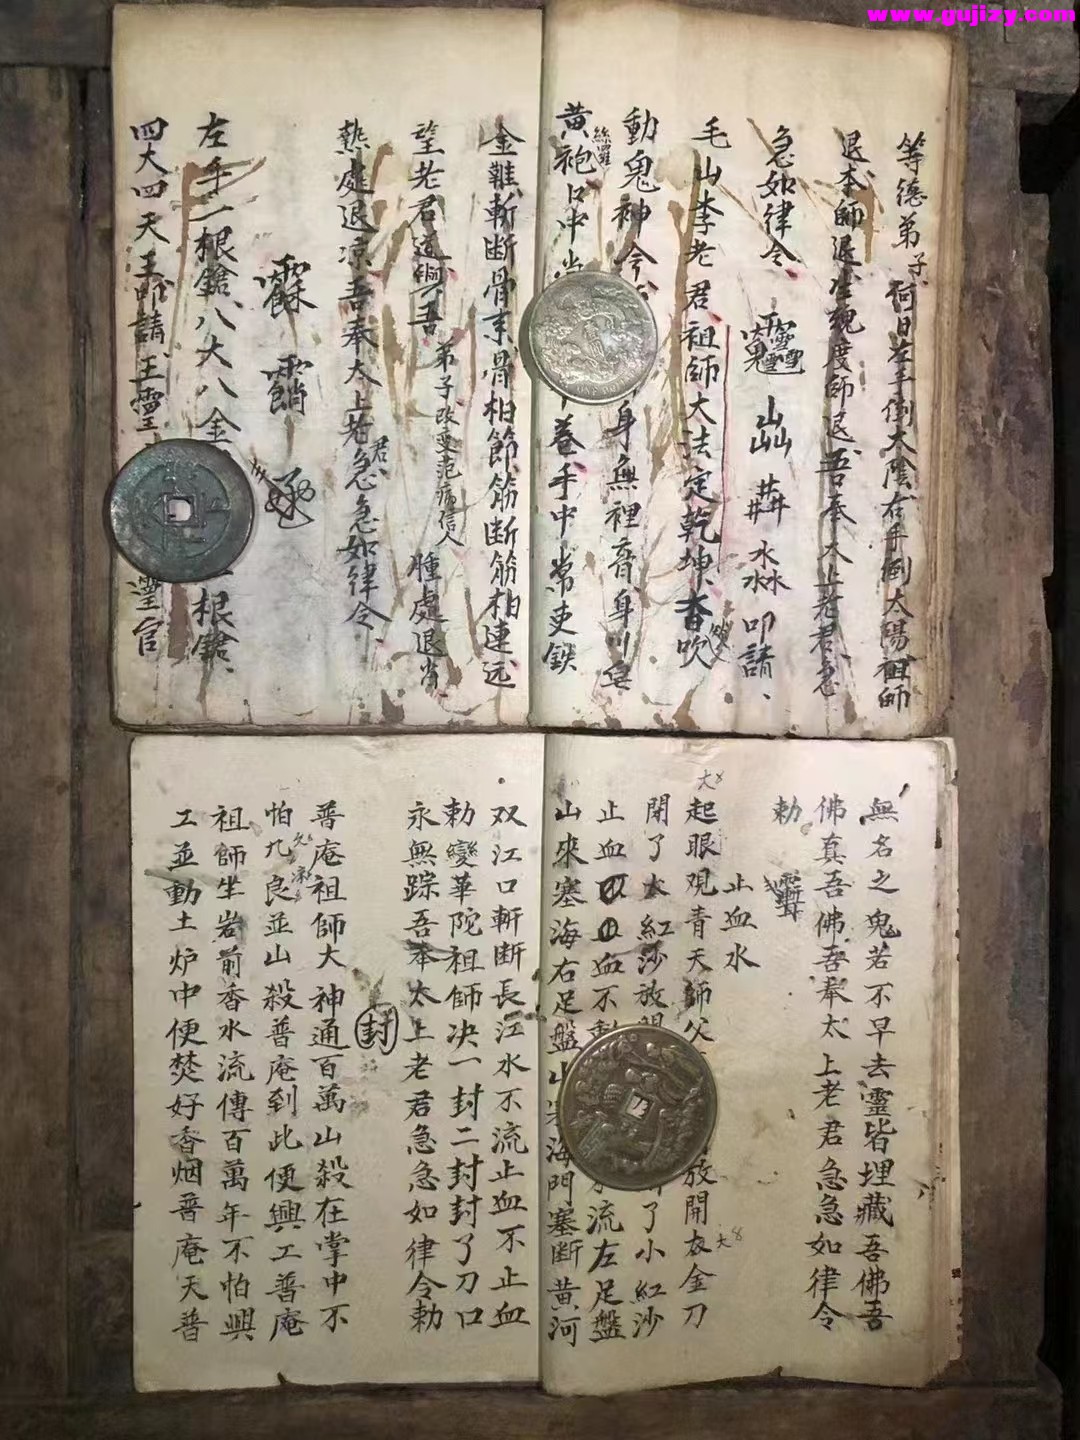 www.gujizy.com
等德弟子何日左手倒太陰右手倒太陽祖師
退本師退生魂度師退吾奉太上老君急
急如律令 叩請
毛山李老君祖師大法定乾坤
動鬼神令 身無裡 身川皂
絲羅
黃袍口中 卷手中常吏鉄
金雞斬断骨来骨相節筋断筋相連远
望老君道與吾弟子改变范病信人腫處退肖
熱處退凉吾奉太上老君急急如律令
左手一根鎗八大八金 根鎗
四大四天王叩請王靈 靈官
無名之鬼若不早去靈皆埋藏吾佛吾
佛真吾佛吾奉太上老君急急如律令
勅
止血水
起眼观青天師父 放開衣金刀
閉了大紅沙放 了小紅沙
止血 止血不 流左足盤
山來塞海右足盤山 海門塞断黄河
双江口斬断長江水不流止血不止血
勅變華陀祖師决一封二封封了刀口
永無踪吾奉太上老君急急如律令勅
封
普庵祖師大神通百萬山殺在掌中不
怕九良並山殺普庵到此便興工普庵
祖師坐岩前香水流傳百萬年不怕興
工並動土炉中便焚好香烟普庵天普